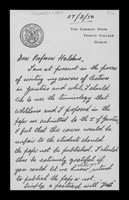 THE COMMON ROOM
TRINITY COLLEGE
DUBLIN
27/2/50
Dear Professor Haldane,
I am at present in the process
of writing my course of lectures
in genetics and while I should
like to use the terminology that
withdrawn and I proposed in the
paper we submitted to the J. of Genetics,
I fear that this course would be
unfair to the students should
the paper not be published. I should
thus be extremely grateful if
you could let me know, intend
to publish the paper or not.
Simply a postcard with